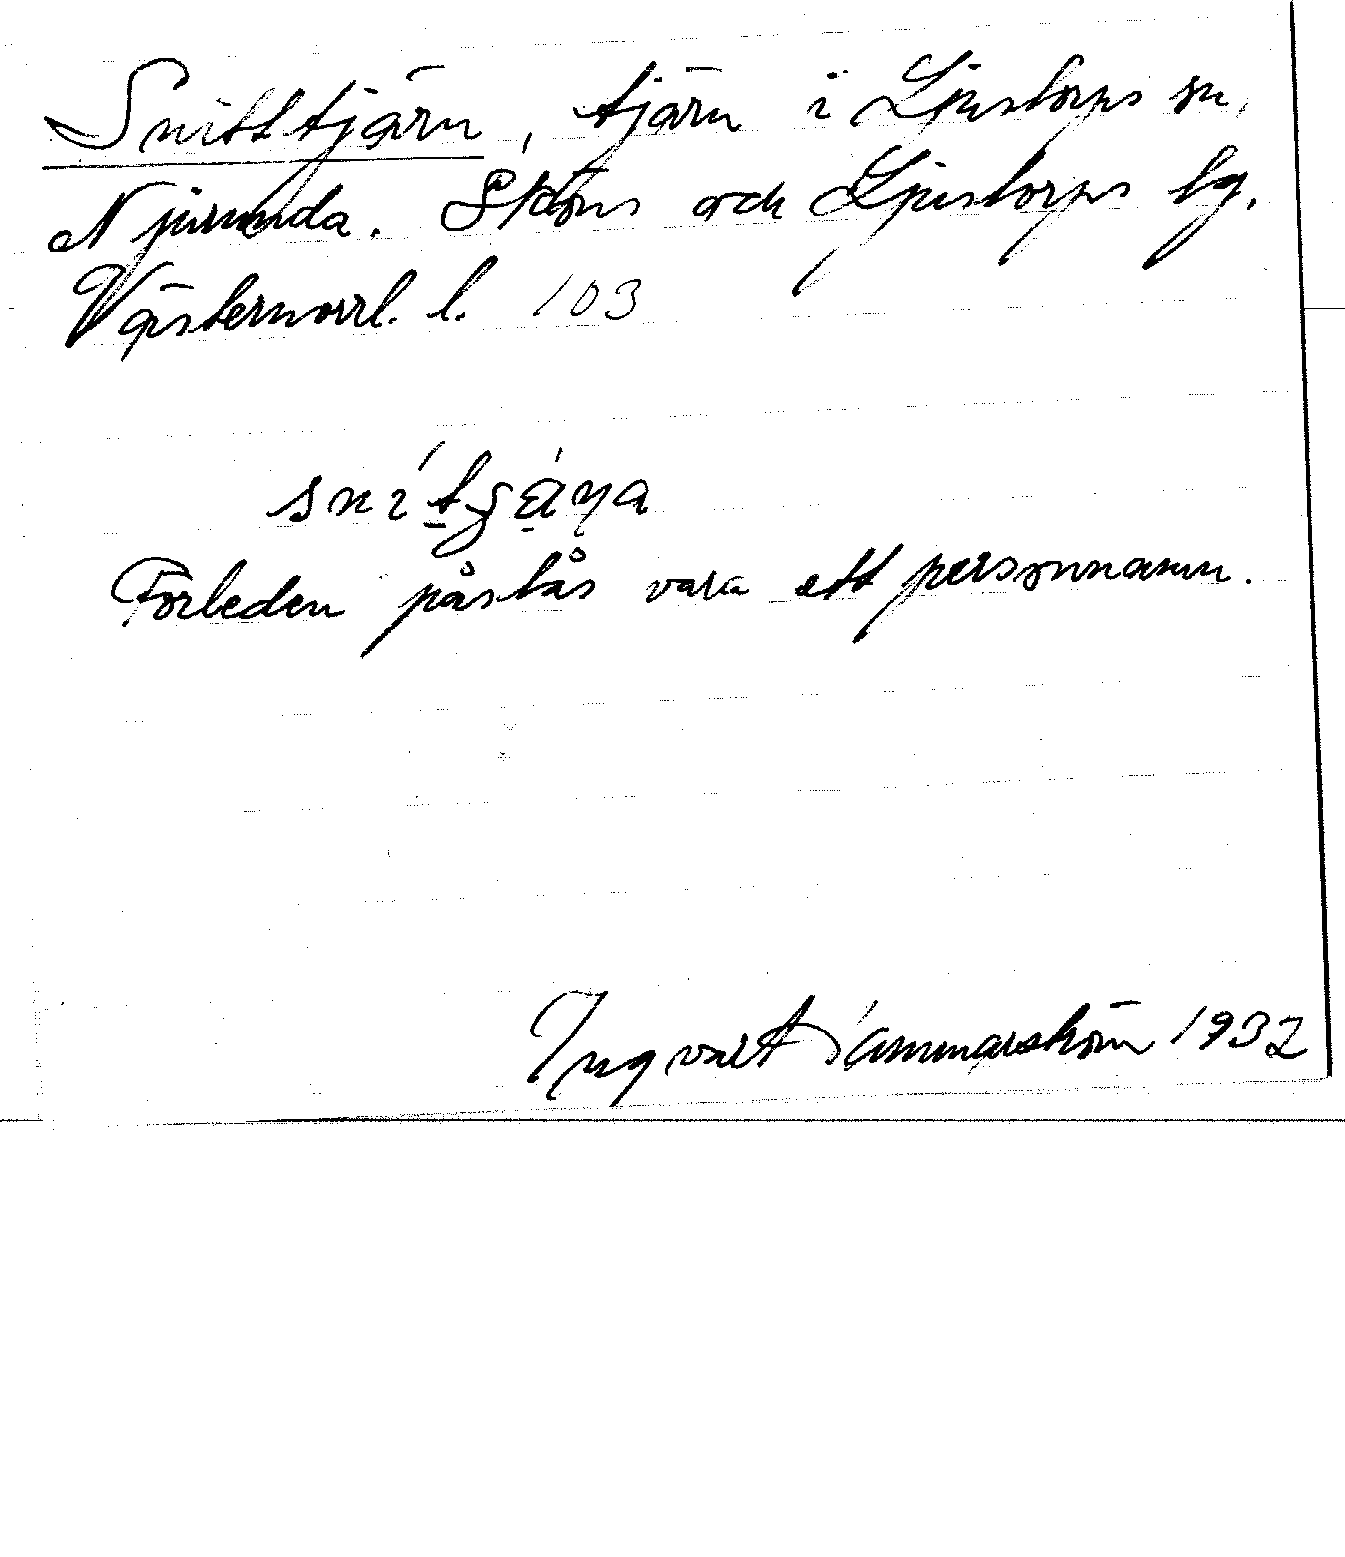 Snitttjärn, tjärn i Ljustorps sn,
Njurunda. Sköns och Ljustorps tg.
Västernorrl. l. 103
Förleden påstås vara ett personnamn.
Ingvart Hammarström 1932